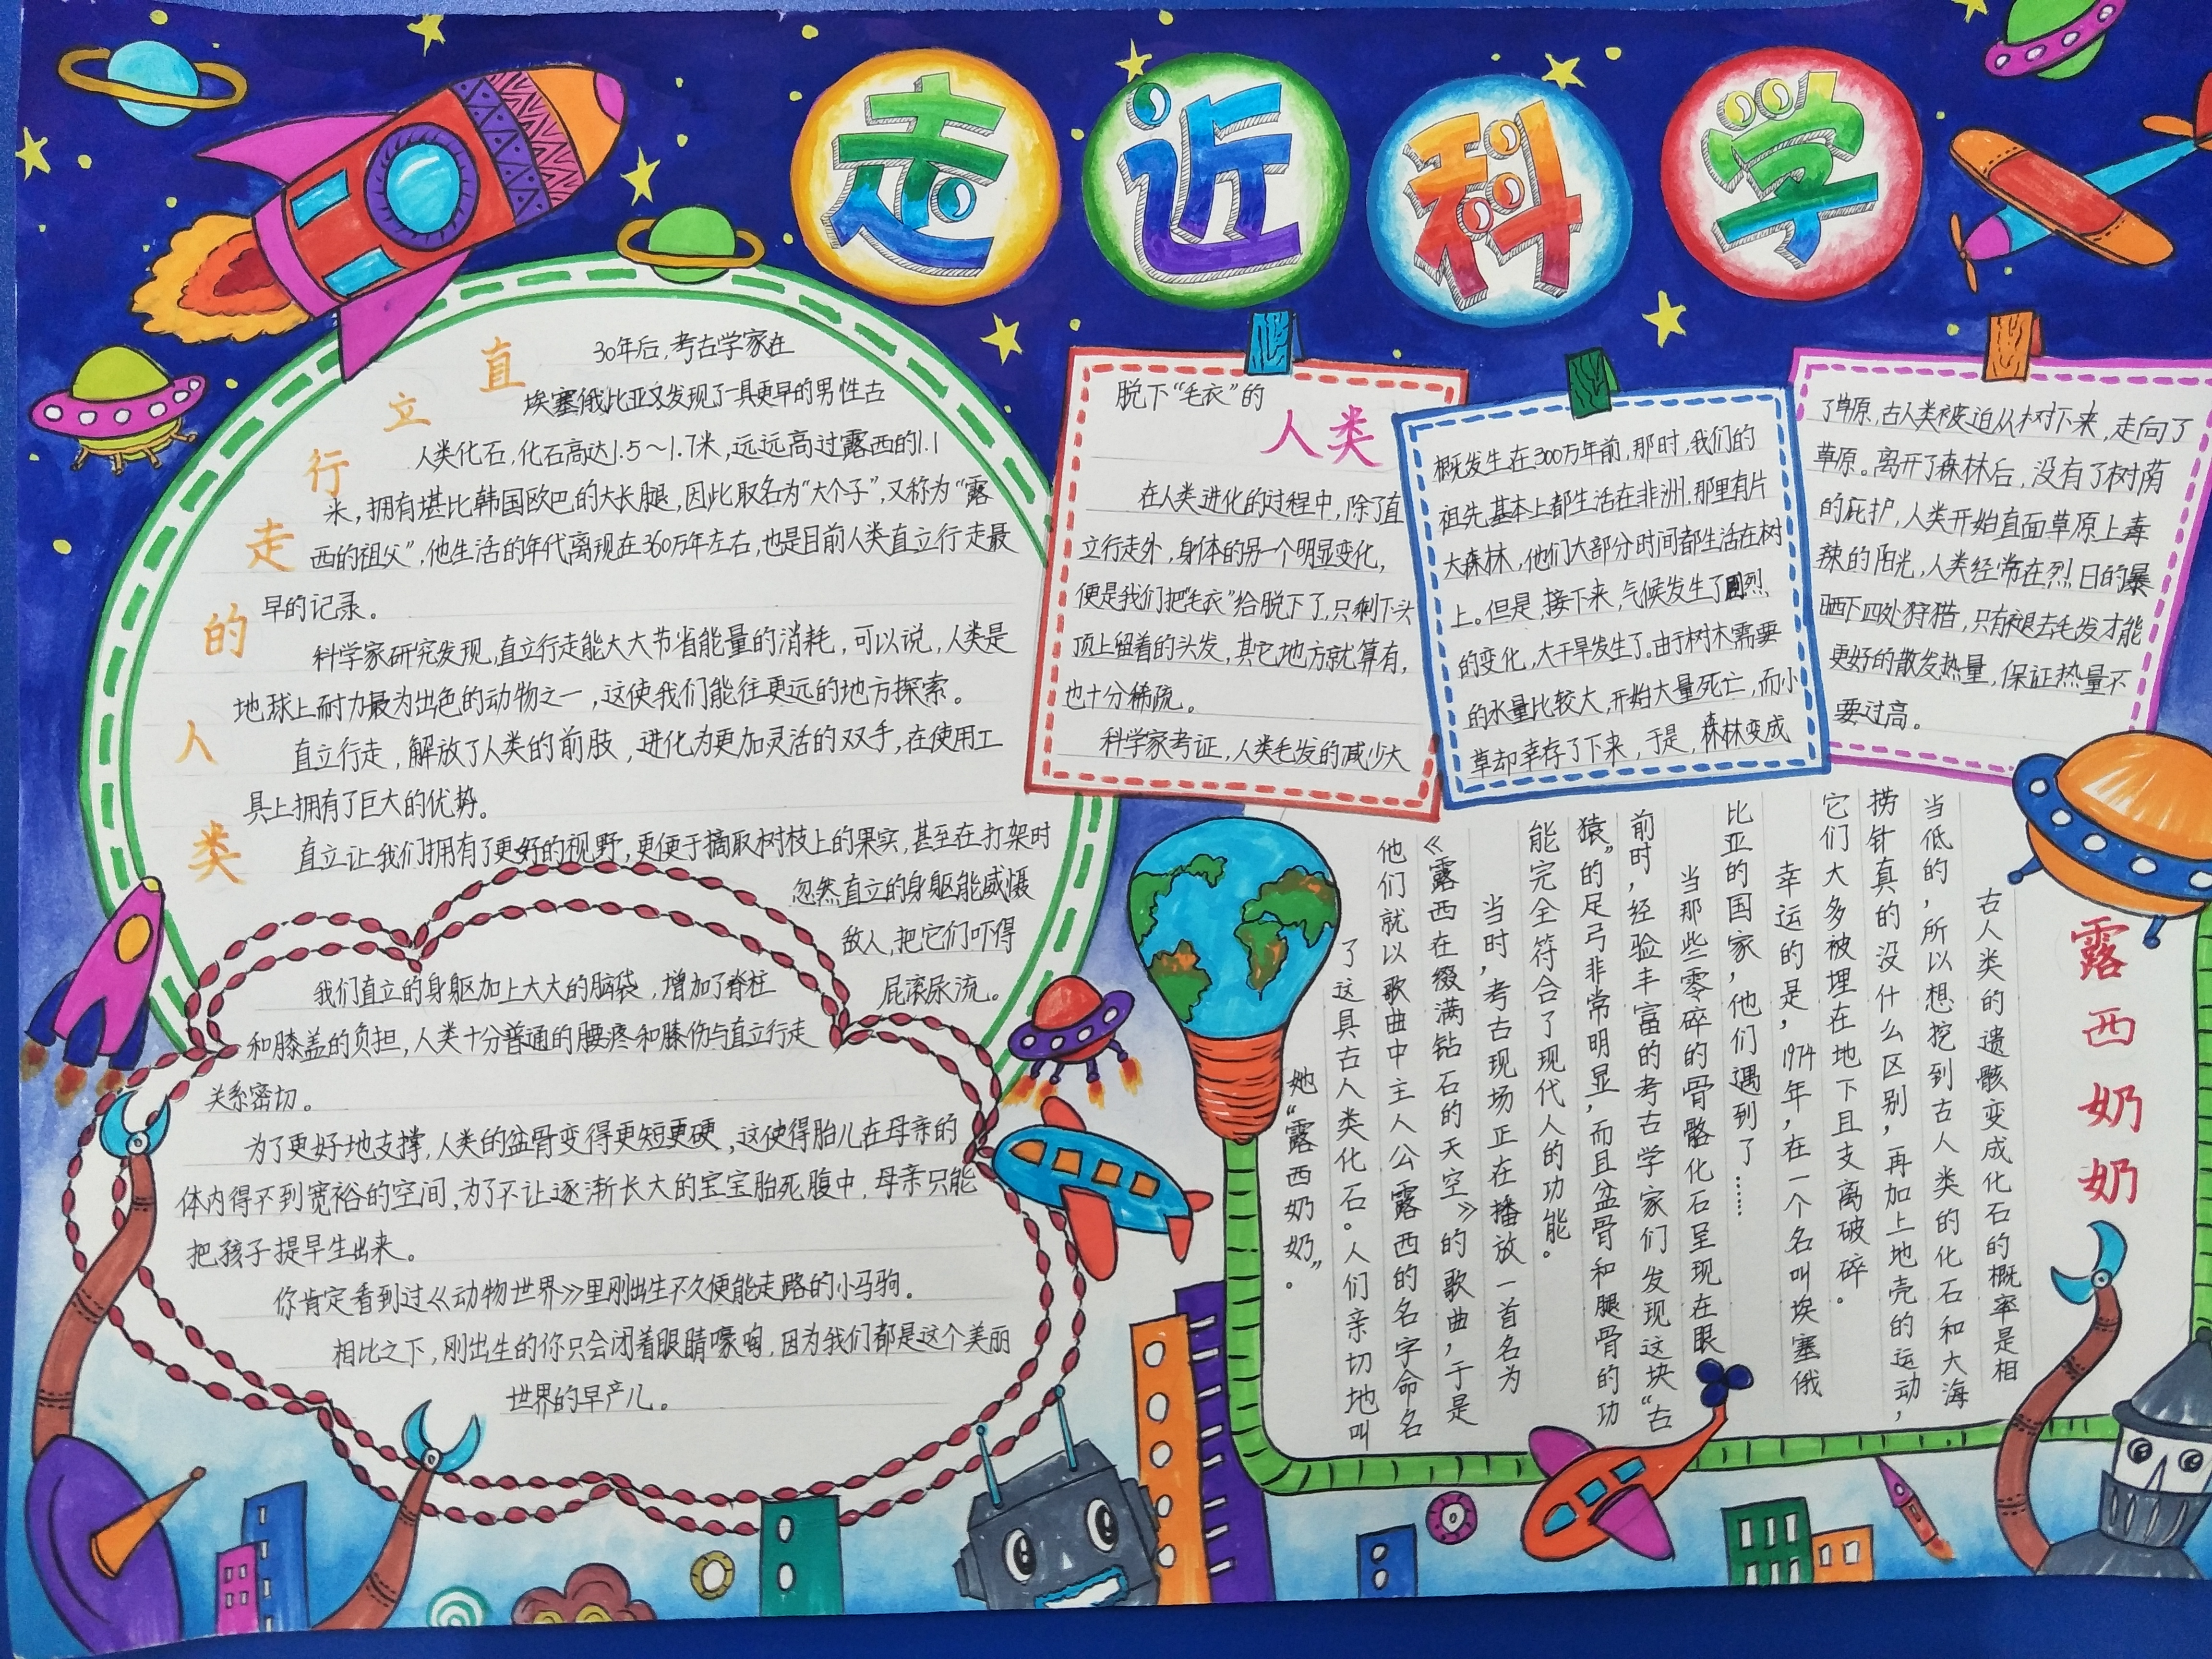 走近科学
直立行走的人类
30年后,考古学家在
埃塞俄比亚又发现了一具更早的男性古
人类化石,化石高达1.5~1.7米,远远高过露西的1.1
米,拥有堪比韩国欧巴的大长腿,因此取名为“大个子”,又称为“露
西的祖父”,他生活的年代离现在360万年左右,也是目前人类直立行走最
早的记录。
科学家研究发现,直立行走能大大节省能量的消耗,可以说,人类是
地球上耐力最为出色的动物之一,这使我们能往更远的地方探索。
直立行走,解放了人类的前肢,进化为更加灵活的双手,在使用工
具上拥有了巨大的优势。
直立让我们拥有了更好的视野,更便于摘取树枝上的果实,甚至在打架时
忽然直立的身躯能威慑
敌人,把它们吓得
屁滚尿流。
我们直立的身躯加上大大的脑袋,增加了脊柱
和膝盖的负担,人类十分普通的腰疼和膝伤与直立行走
关系密切。
为了更好地支撑,人类的盆骨变得更短更硬,这使得胎儿在母亲的
体内得不到宽裕的空间,为了不让逐渐长大的宝宝胎死腹中,母亲只能
把孩子提早生出来。
你肯定看到过《动物世界》里刚出生不久便能走路的小马驹.
相比之下,刚出生的你只会闭着眼睛嚎啕,因为我们都是这个美丽
世界的早产儿。
脱下“毛衣”的
人类
在人类进化的过程中,除了直
立行走外,身体的另一个明显变化,
便是我们把“毛衣”给脱下了,只剩下头
顶上留着的头发,其它地方就算有,
也十分稀疏。
科学家考证,人类毛发的减少大
概发生在300万年前,那时,我们的
祖先基本上都生活在非洲,那里有片
大森林,他们大部分时间都生活在树
上。但是,接下来,气候发生了剧烈
的变化,大干旱发生了。由于树木需要
的水量比较大,开始大量死亡,而小
草却幸存了下来,于是,森林变成
了草原,古人类被迫从树下来,走向了
草原。离开了森林后,没有了树荫
的庇护,人类开始直面草原上毒
辣的阳光,人类经常在烈日的暴
晒下四处狩猎,只有褪去毛发才能
更好的散发热量,保证热量不
要过高。
露西奶奶
古人类的遗骸变成化石的概率是相
当低的,所以想挖到古人类的化石和大海
捞针真的没什么区别,再加上地壳的运动,
它们大多被埋在地下且支离破碎。
幸运的是,1974年,在一个名叫埃塞俄
比亚的国家,他们遇到了……
当那些零碎的骨骼化石呈现在眼
前时,经验丰富的考古学家们发现这块“古
猿”的足弓非常明显,而且盆骨和腿骨的功
能完全符合了现代人的功能。
当时,考古现场正在播放一首名为
《露西在缀满钻石的天空》的歌曲,于是
他们就以歌曲中主人公露西的名字命名
了这具古人类化石。人们亲切地叫
她“露西奶奶”。